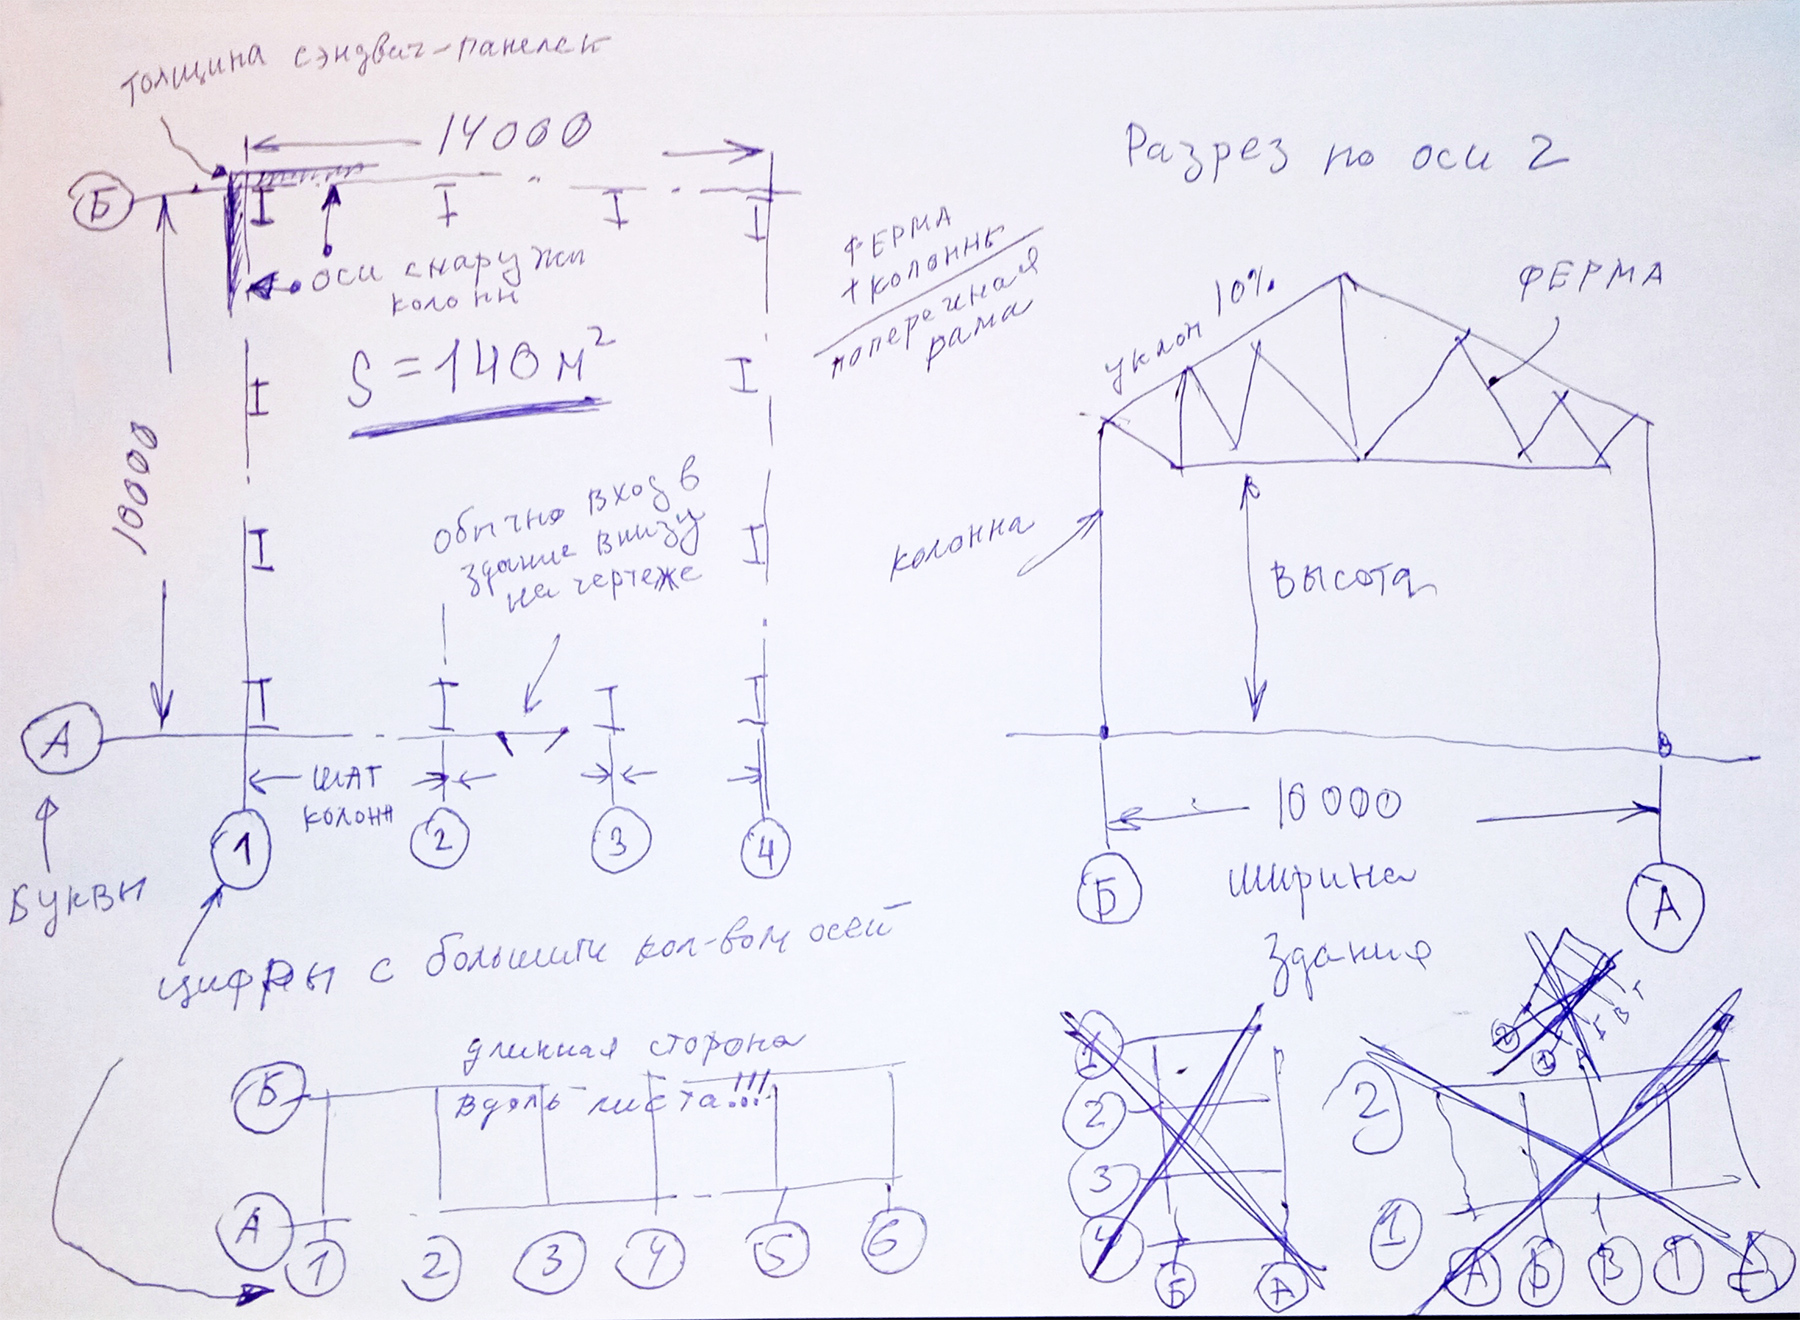 толщина сэндвич-панелей
14000
Б
оси снаружи
колонн
S = 140 м²
10000
обычно вход в
здание внизу
на чертеже
А
шаг
колонн
1
2
3
4
Буквы
цифры с большим кол-вом осей
ФЕРМА
+ колонны
поперечная
рама
Разрез по оси 2
уклон 10%
ФЕРМА
колонна
высота
10 000
Б
ширина
здания
А
длинная сторона
вдоль листа!!!
Б
А
1
2
3
4
5
6
1
2
3
4
Б
А
2
1
А
Б
В
Г
Д
2
1
Б
В
Г